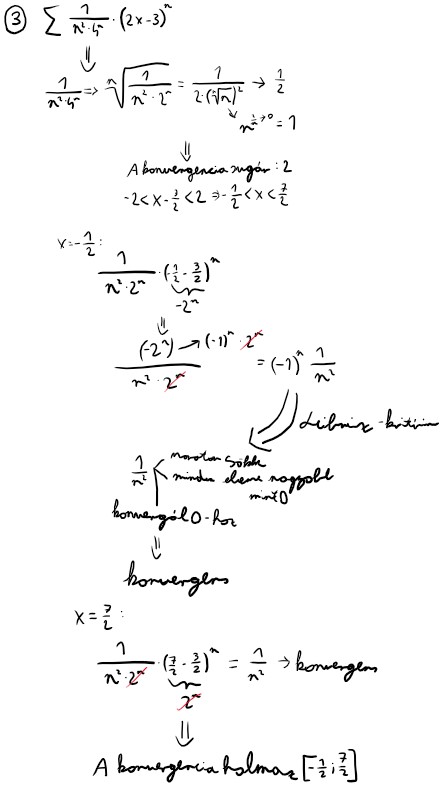 ③ ∑ 1/(n²·4ⁿ) · (2x-3)ⁿ
⇓
1/(n²·4ⁿ) => ⁿ√(1/(n²·2ⁿ)) = 1/(2·(ⁿ√n)²) → 1/2
n^(1/n→0) = 1
⇓
A konvergencia sugár: 2
-2 < x - 3/2 < 2 => -1/2 < x < 7/2
x = -1/2:
1/(n²·2ⁿ) · (-1/2 - 3/2)ⁿ
-2ⁿ
⇓
(-2ⁿ) → (-1)ⁿ · 2ⁿ
n²·2ⁿ = (-1)ⁿ 1/n²
Leibniz-kritérium
1/n² monoton csökk
minden eleme nagyobb
mint 0
konvergál 0-hoz
⇓
konvergens
x = 7/2:
1/(n²·2ⁿ) · (7/2 - 3/2)ⁿ = 1/n² → konvergens
2ⁿ
⇓
A konvergencia halmaz [-1/2; 7/2]